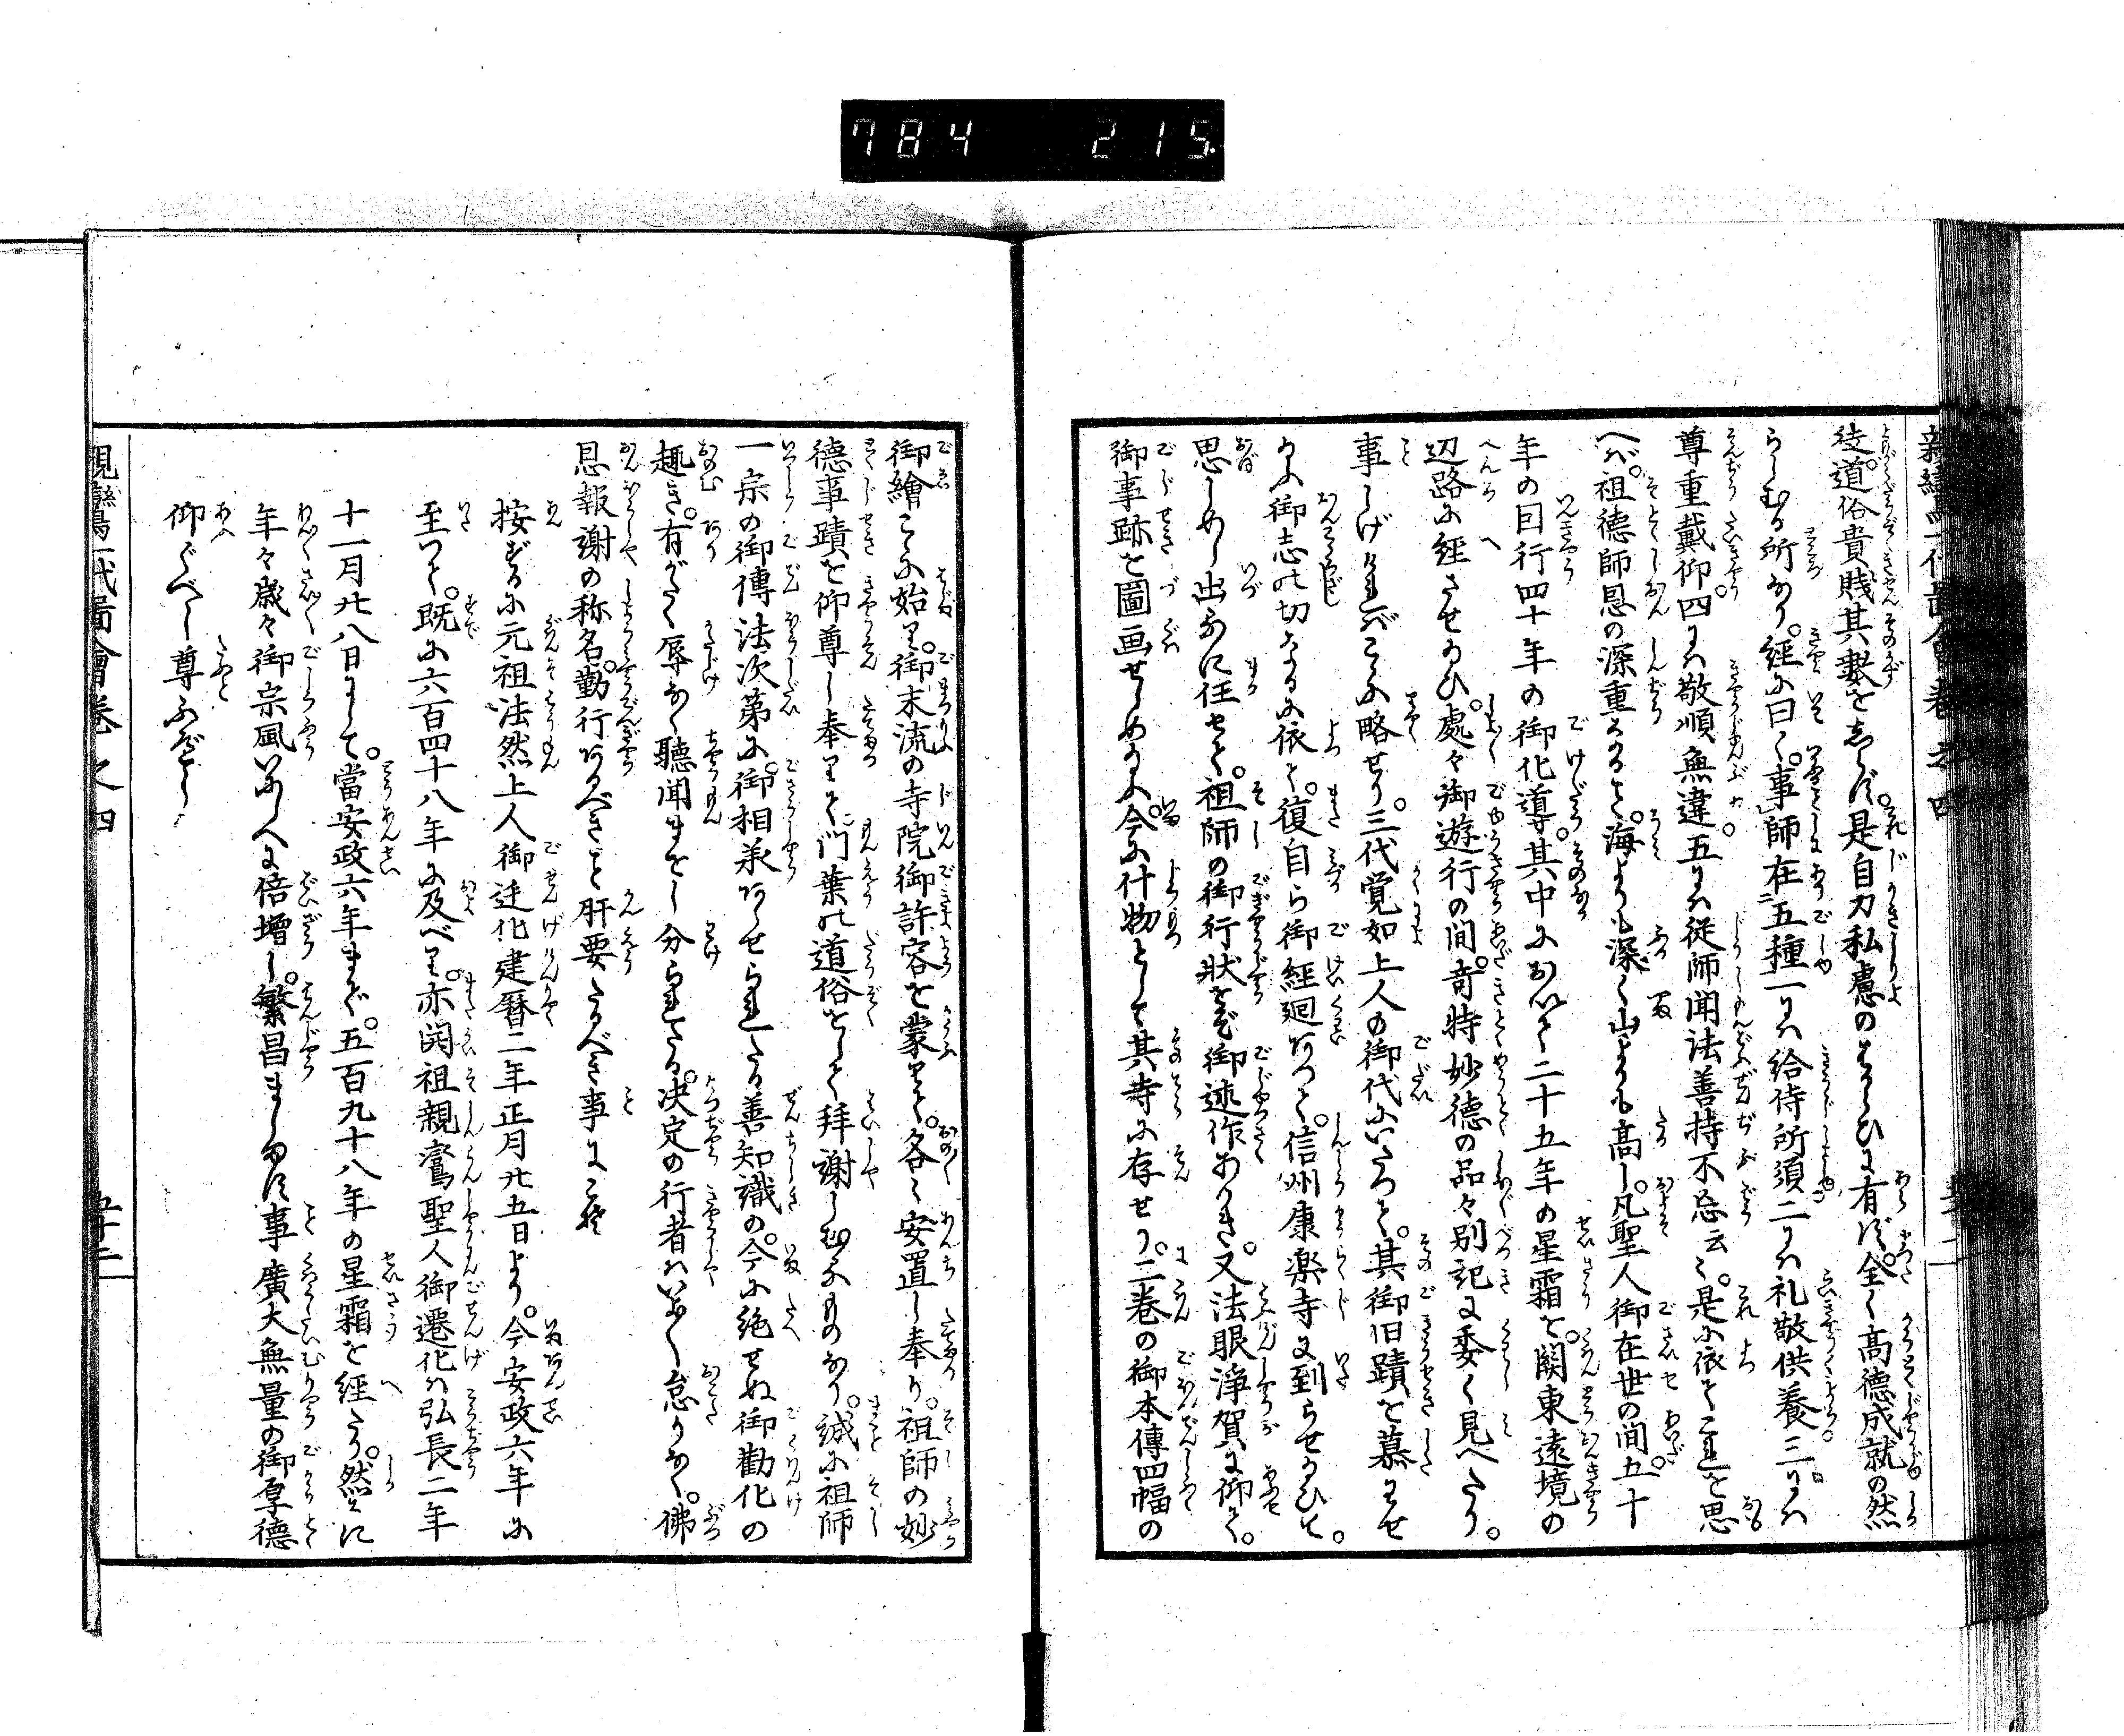 784 215
親鸞一代圖會巻之四
徒。道俗貴賤其數を志らず。是自力私慮のはからひに有ず。全く高徳成就の然
らしむる所なり。經に曰く。事師在五種一には給侍所須二には礼敬供養三には
尊重戴仰。四には敬順無違。五には従師聞法善持不忘云々。是に依てこれを思
へば。祖徳師恩の深重なること。海よりも深く山よりも高し。凡聖人御在世の間。五十
年の因行四十年の御化導。其中において二十五年の星霜を。関東遠境の
辺路に経させ給ひ。處々御遊行の間。奇特妙徳の品々別記に委く見へたり。
事しげければこゝに略せり。三代覚如上人の御代にいたつて。其御旧蹟を慕はせ
給ふ御志の切なるに依て。復自ら御經廻あつて。信州康楽寺に到らせ給ひて。
思しめし出るに任せて。祖師の御行状をぞ御述作ありき。又法眼淨賀に仰て。
御事跡を圖画せしめ給ふ。今に什物として其寺に存せり。二巻の御本傳四幅の
御繪こゝに始り。御末流の寺院御許容を蒙りて。各々安置し奉り。祖師の妙
徳事蹟を仰尊し奉りて。門葉の道俗をして拜謝しむるものなり。誠に祖師
一宗の御傳法次第に。御相承あらせられたる善知識の。今に絶せぬ御勸化の
趣き。有がたく辱なく聽聞まをし分られたる。決定の行者はいよ〳〵怠りなく。佛
恩報謝の称名。勤行あるべきこと肝要たるべき事にこそ
按ずるに元祖法然上人御迁化建暦二年正月廿五日より。今安政六年に
至つて。既に六百四十八年に及べり。亦開祖親鸞聖人御遷化は弘長二年
十一月廿八日にして。當安政六年まで。五百九十八年の星霜を経たり。然るに
年々歳々御宗風いにしへに倍増し。繁昌まします事廣大無量の御厚徳
仰ぐべし尊ふべし
親鸞一代圖會巻之四
五十二